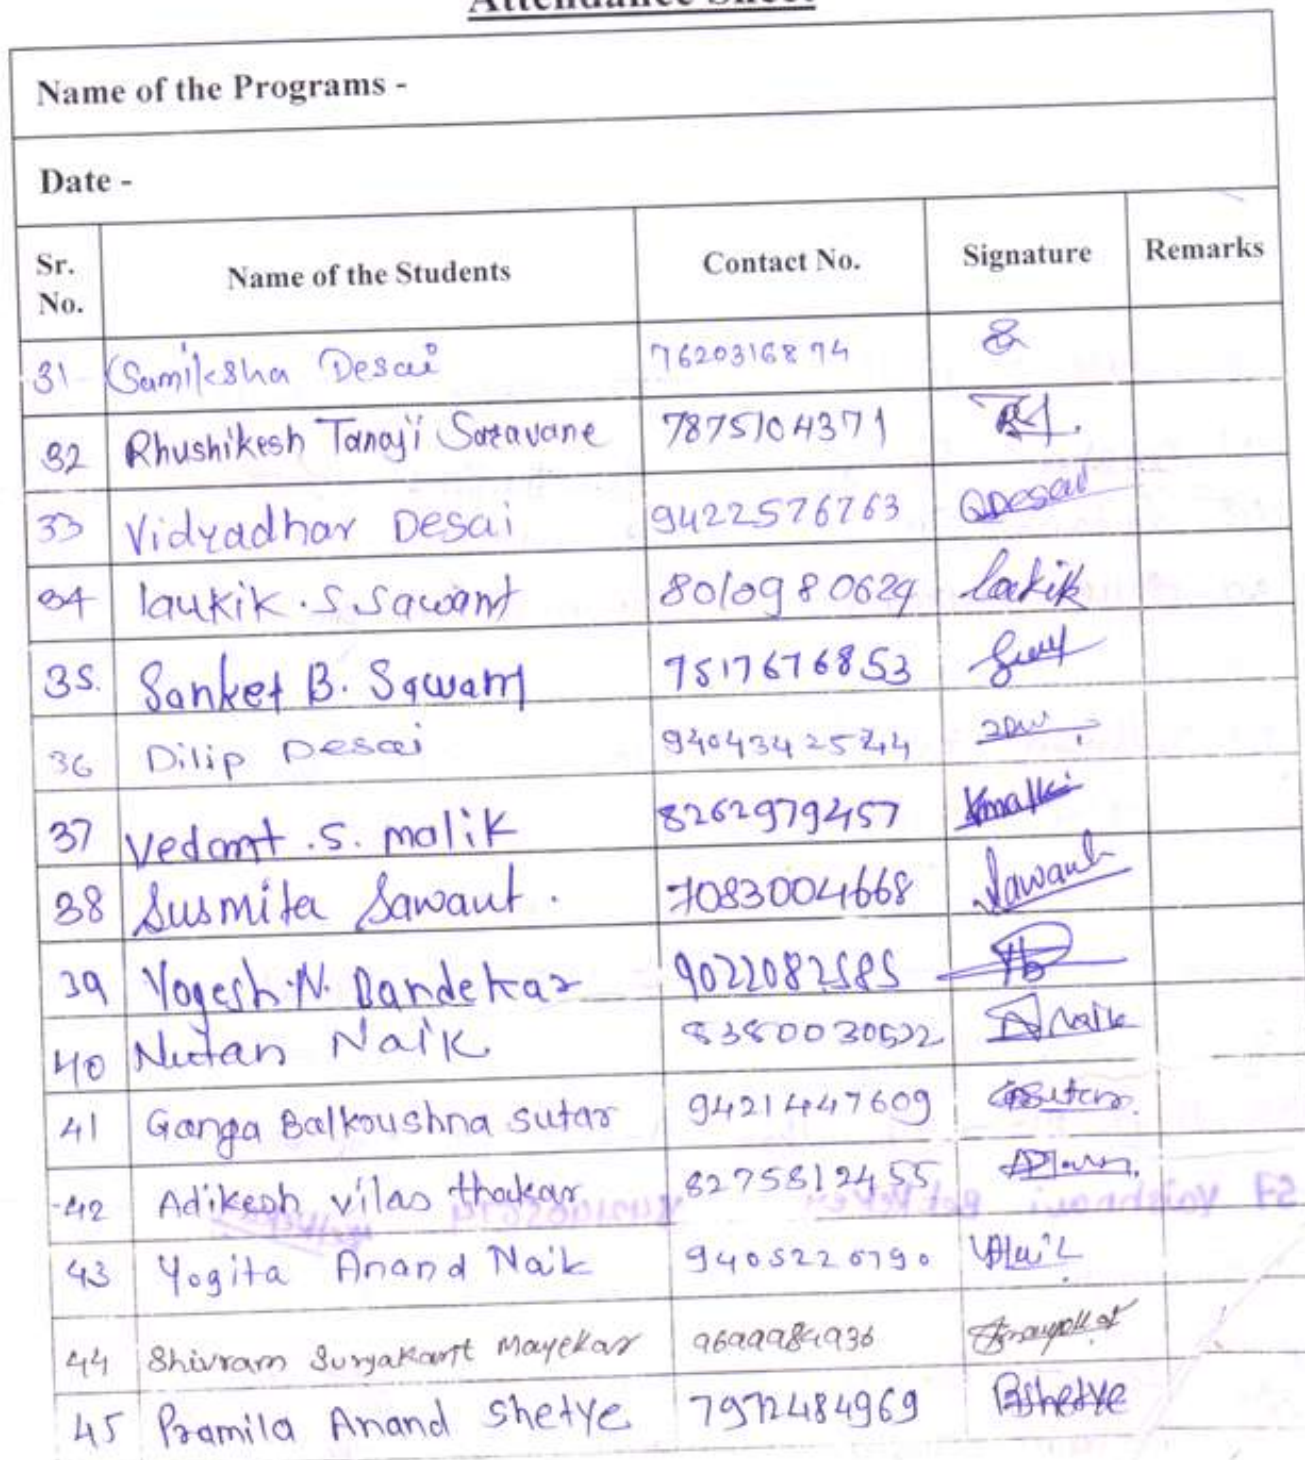 Attendance Sheet
Name of the Programs -
Date -
Sr. No. Name of the Students Contact No. Signature Remarks
31 Samiksha Desai 7620316874
32 Rhushikesh Tanaji Saravane 7875104371
33 Vidyadhar Desai 9422576763 Desai
34 laukik . S. Sawant 8010980629 laukik
35. Sanket B. Sawant 7517676853
36 Dilip Desai
37 Vedant .S. malik 8262979457
38 Susmita Sawant . 7083004668 Sawant
39 Yogesh.N. Dandekar 9022082585
40 Nutan Naik Naik
41 Ganga Balkoushna sutar 9421447609 Sutar.
42 Adikesh vilas thakar 8275812455
43 Yogita Anand Naik 9405226790
44 Shivram Suryakant Mayekar 9699984936
45 Pramila Anand shetye 7972484969 Pshetye